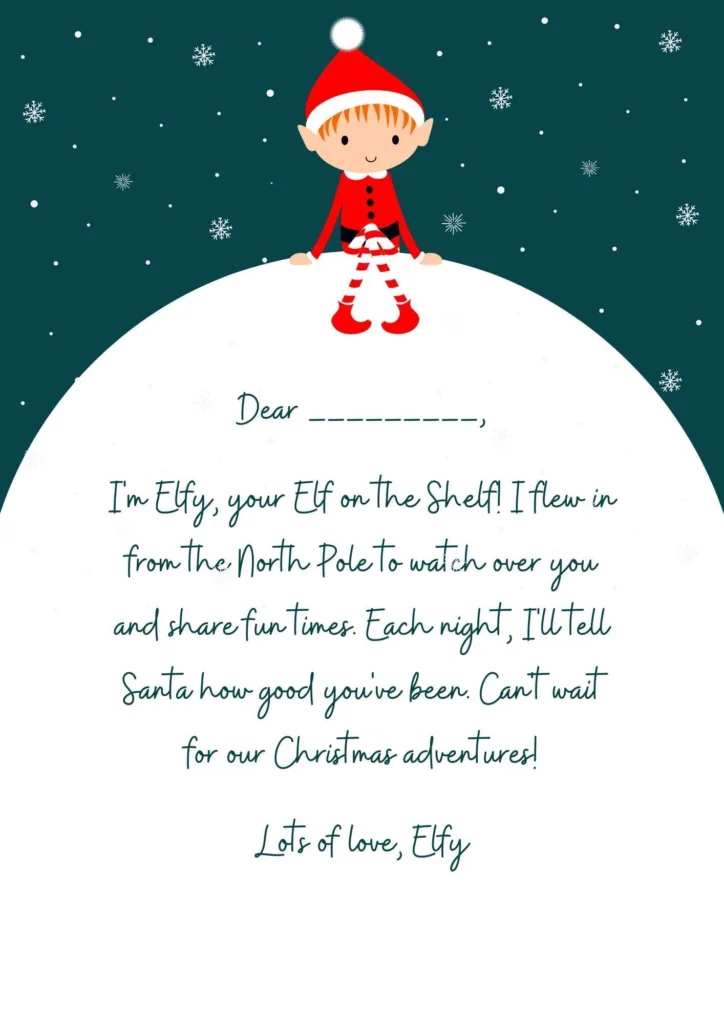 Dear _________,
I'm Elfy, your Elf on the Shelf! I flew in
from the North Pole to watch over you
and share fun times. Each night, I'll tell
Santa how good you've been. Can't wait
for our Christmas adventures!
Lots of love, Elfy